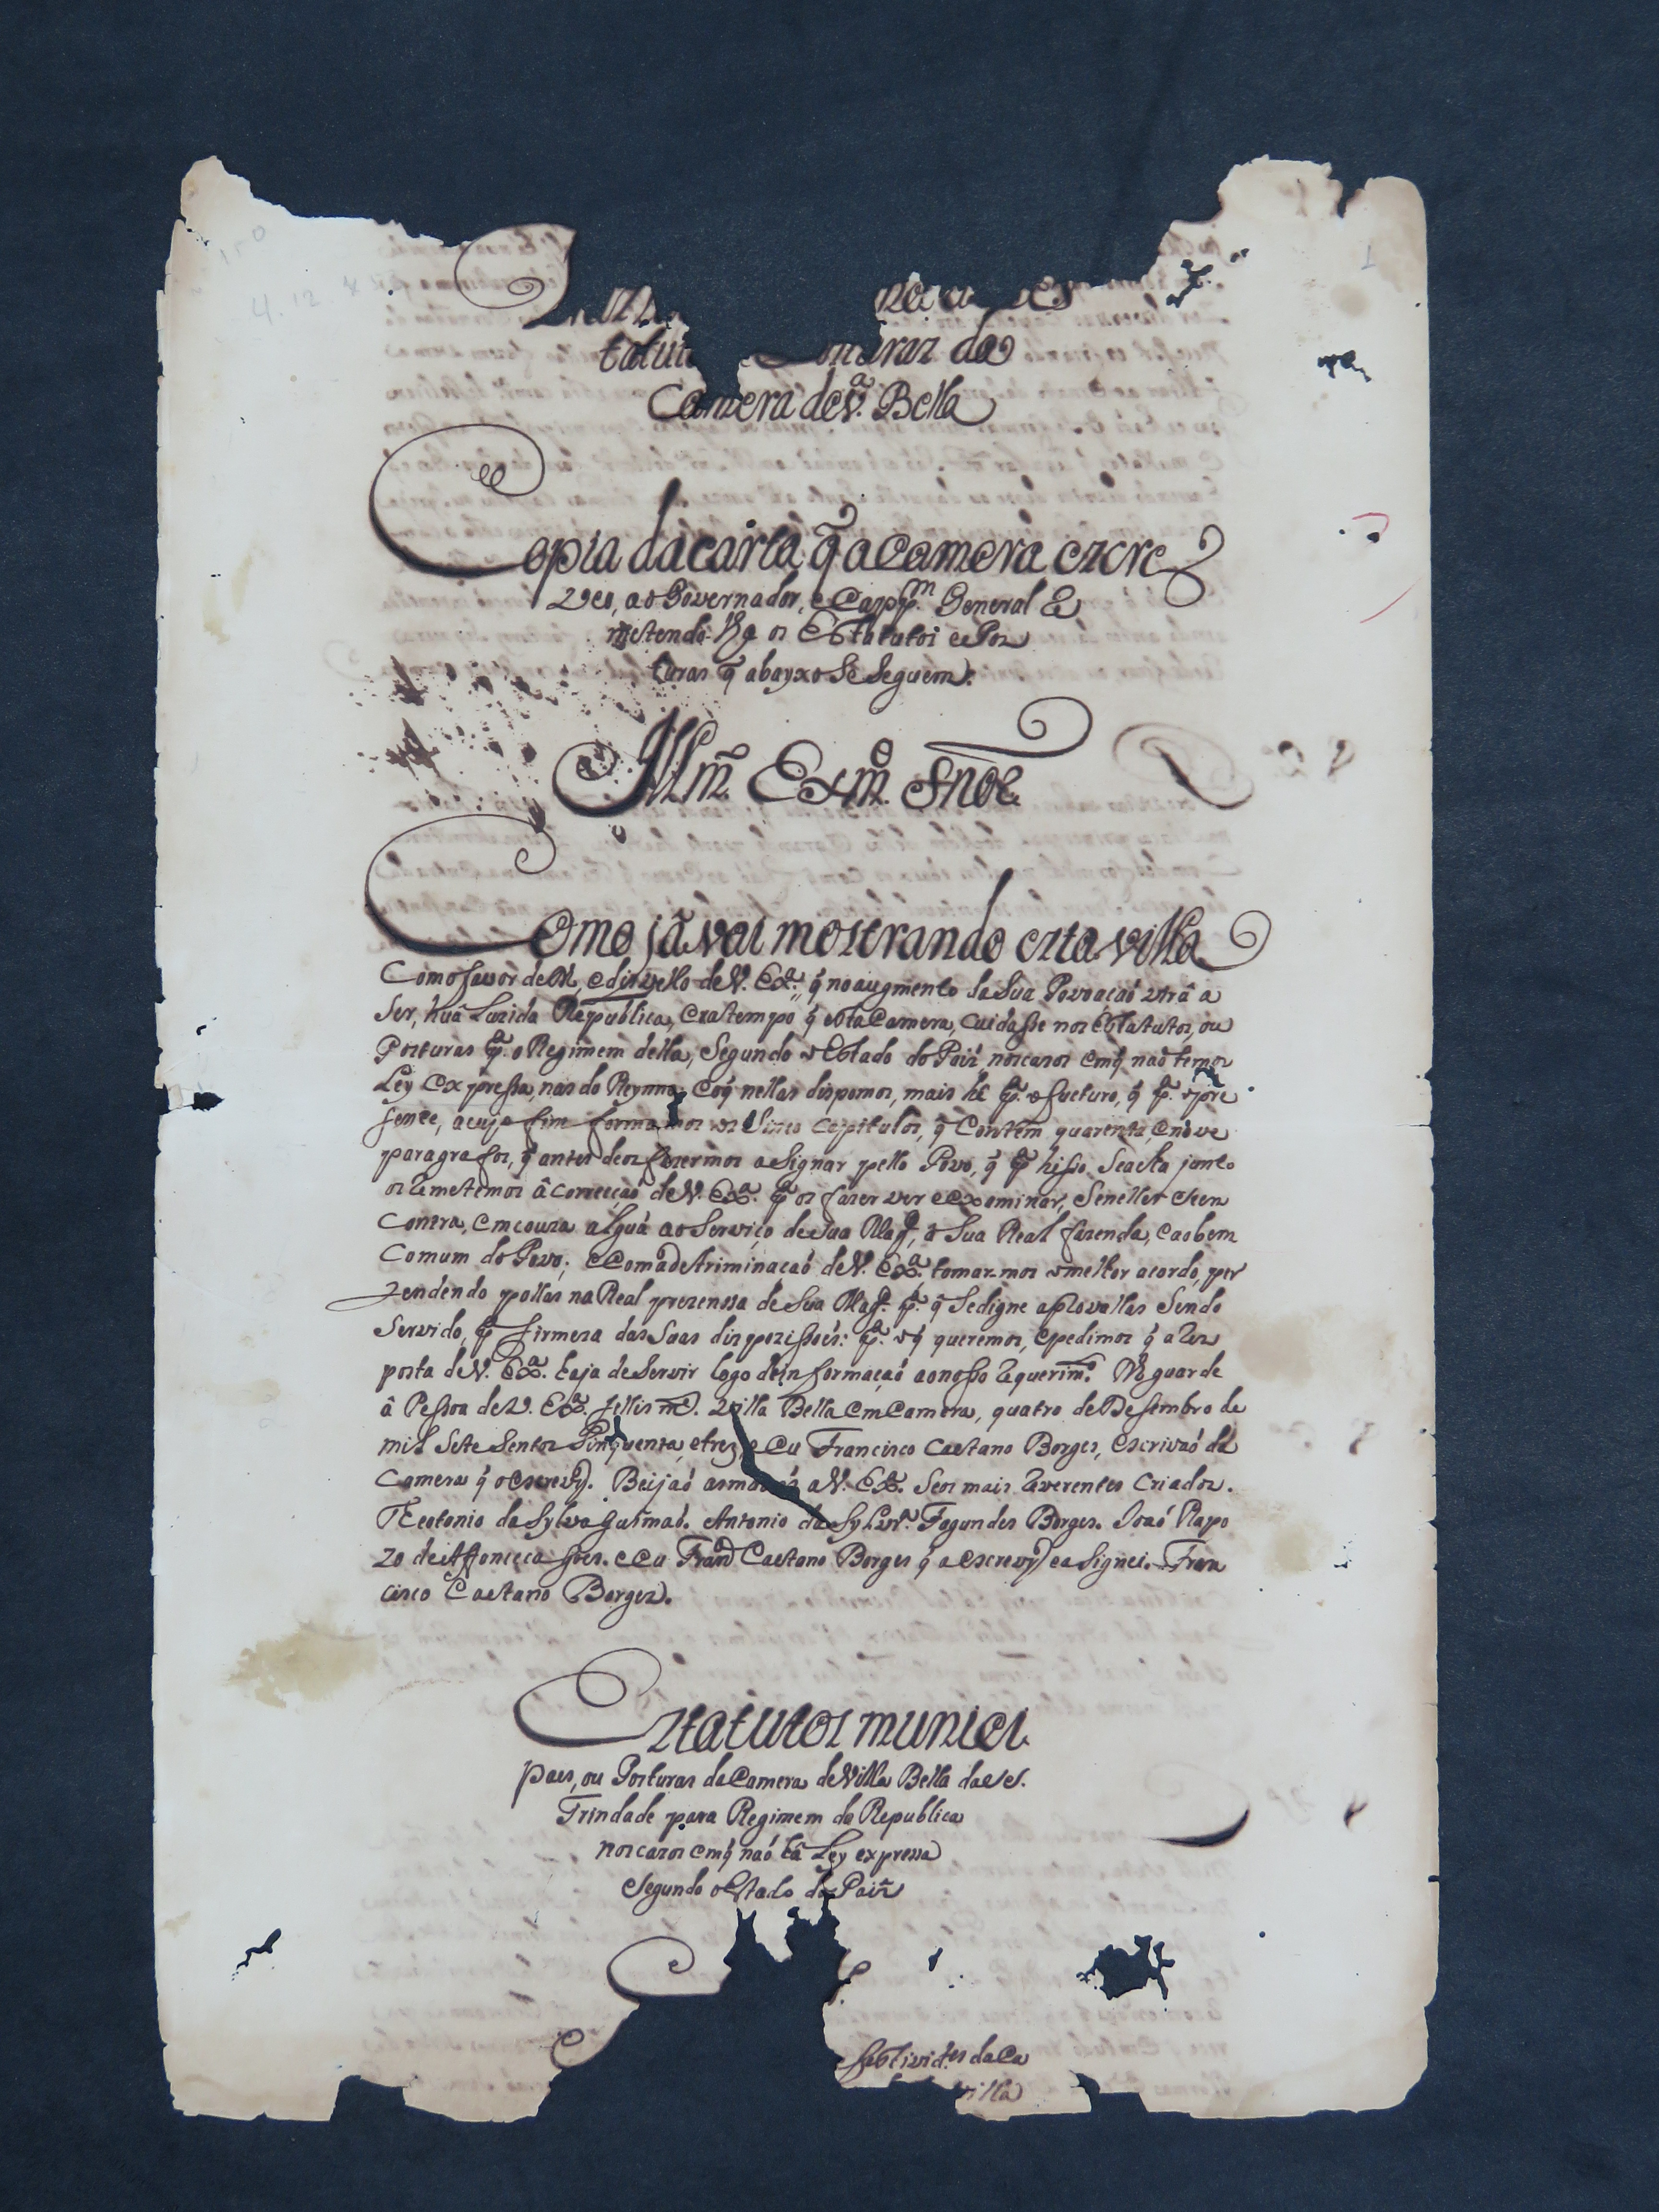 Camera de V.ª Bella
Copia da carta q̃ a Camera escre
veo, ao Governador, e Capp.m General Re
metendo lhe os Estatutos e Pos
turas q̃ abayxo se seguem.
Illm.º Exm.º Snõr.
Como já vai mostrando esta villa
Com o favor de D.s, e disvello de V. Ex.ª, q̃ no augmento da sua Povoaçaó virá a
ser, huã Luzida Republica, era tempo q̃ esta Camera, cuidasse nos Estatutos, ou
Posturas p.ª o Regimem della, segundo o Estado do Paiz, nos casos em q̃ naõ temos
Ley expressa, nas do Reyno; e o q̃ nellas dispomos, mais hé p.ª o fucturo, q̃ p.ª o pre
sente, a cujo fim formamos os Sinco capitulos, q̃ Contém quarenta, e nove
paragrafos, q̃ antes de os fazermos asignar pello Povo, q̃ p.ª hisso se acha junto
os Remetemos á correcçaó de V. Ex.ª p.ª os fazer ver e examinar, se nelles se en
contra, em couza algua ao Serviço de sua Mag.e, á Sua Real fazenda, e ao bem
Comum do Povo; e com a detriminaçaó de V. Ex.ª tomarmos o melhor acordo, per
tendendo pollas na Real prezenssa de Sua Mag.e p.ª q̃ se digne aprovallas sendo
servido, p.ª firmeza das suas dispozissoés: p.ª o q̃ queremos, e pedimos q̃ a Res
posta de V. Ex.ª haja de servir logo de informaçaó ao nosso Requerim.º D.s guarde
á Pessoa de V. Ex.ª fellis m.s Villa Bella em Camera, quatro de Desembro de
mil sete sentos Sinquenta, e trez, e eu Francisco Caetano Borges, escrivaó da
Camera q̃ o escrevy. Beijaó as maõs a V. Ex.ª Seos mais Reverentes Criados.
Teotonio da Sylva Gusmaó. Antonio da Sylvr.ª Fagundes Borges. Joaó Rapo
zo de Affonceca Goes. e eu Fran.co Caetano Borges q̃ a escrevy e asignei. Fran
cisco Caetano Borges.
Estatutos munici
paes, ou Posturas da Camera de Villa Bella da SS.
Trindade para Regimem da Republica
nos cazos em q̃ naó há Ley expressa
segundo o Estado do Paiz
festivid.es da Ca
villa